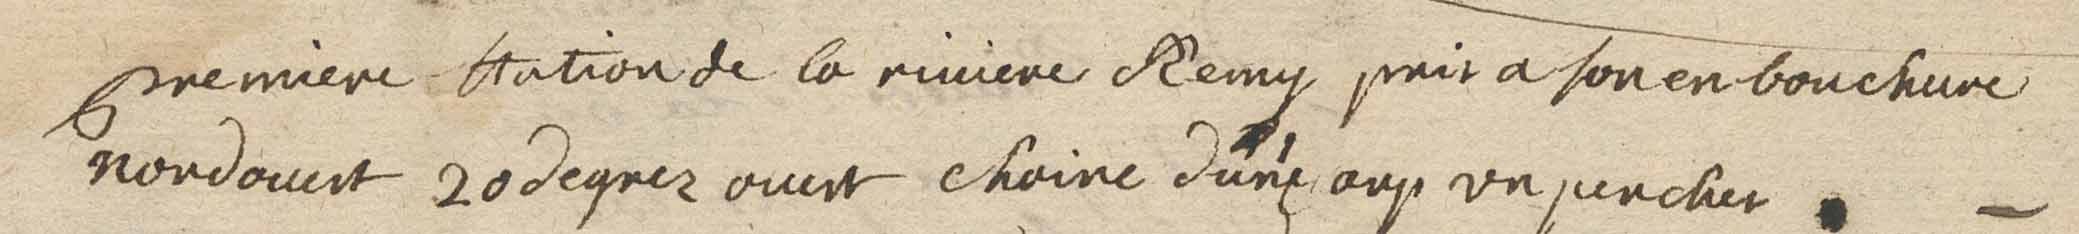 premiere station de la riviere Remy pris a son enbouchure
nordouest 20 degrez ouest chaine d'une arp un perches . –